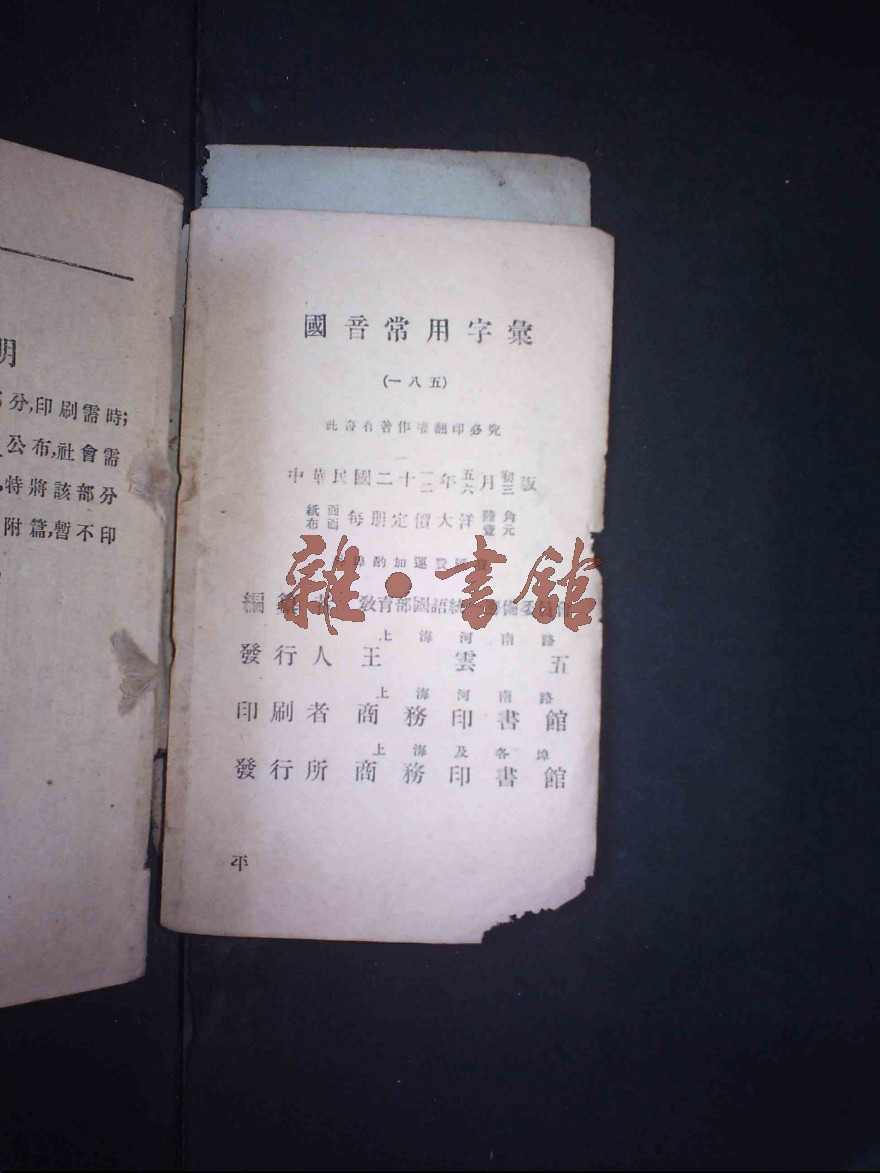 明
分,印刷需時;
公布,社會需
特將該部分
附篇,暫不印
國音常用字彙
(一八五)
此書有著作權翻印必究
中華民國二十一二年五六月初三版
紙面布面每册定價大洋陸角壹元
酌加運費
雜·書館
編 教育部國語統 備委員會
上海河南路
發行人 王雲五
上海河南路
印刷者 商務印書館
上海及各埠
發行所 商務印書館
平